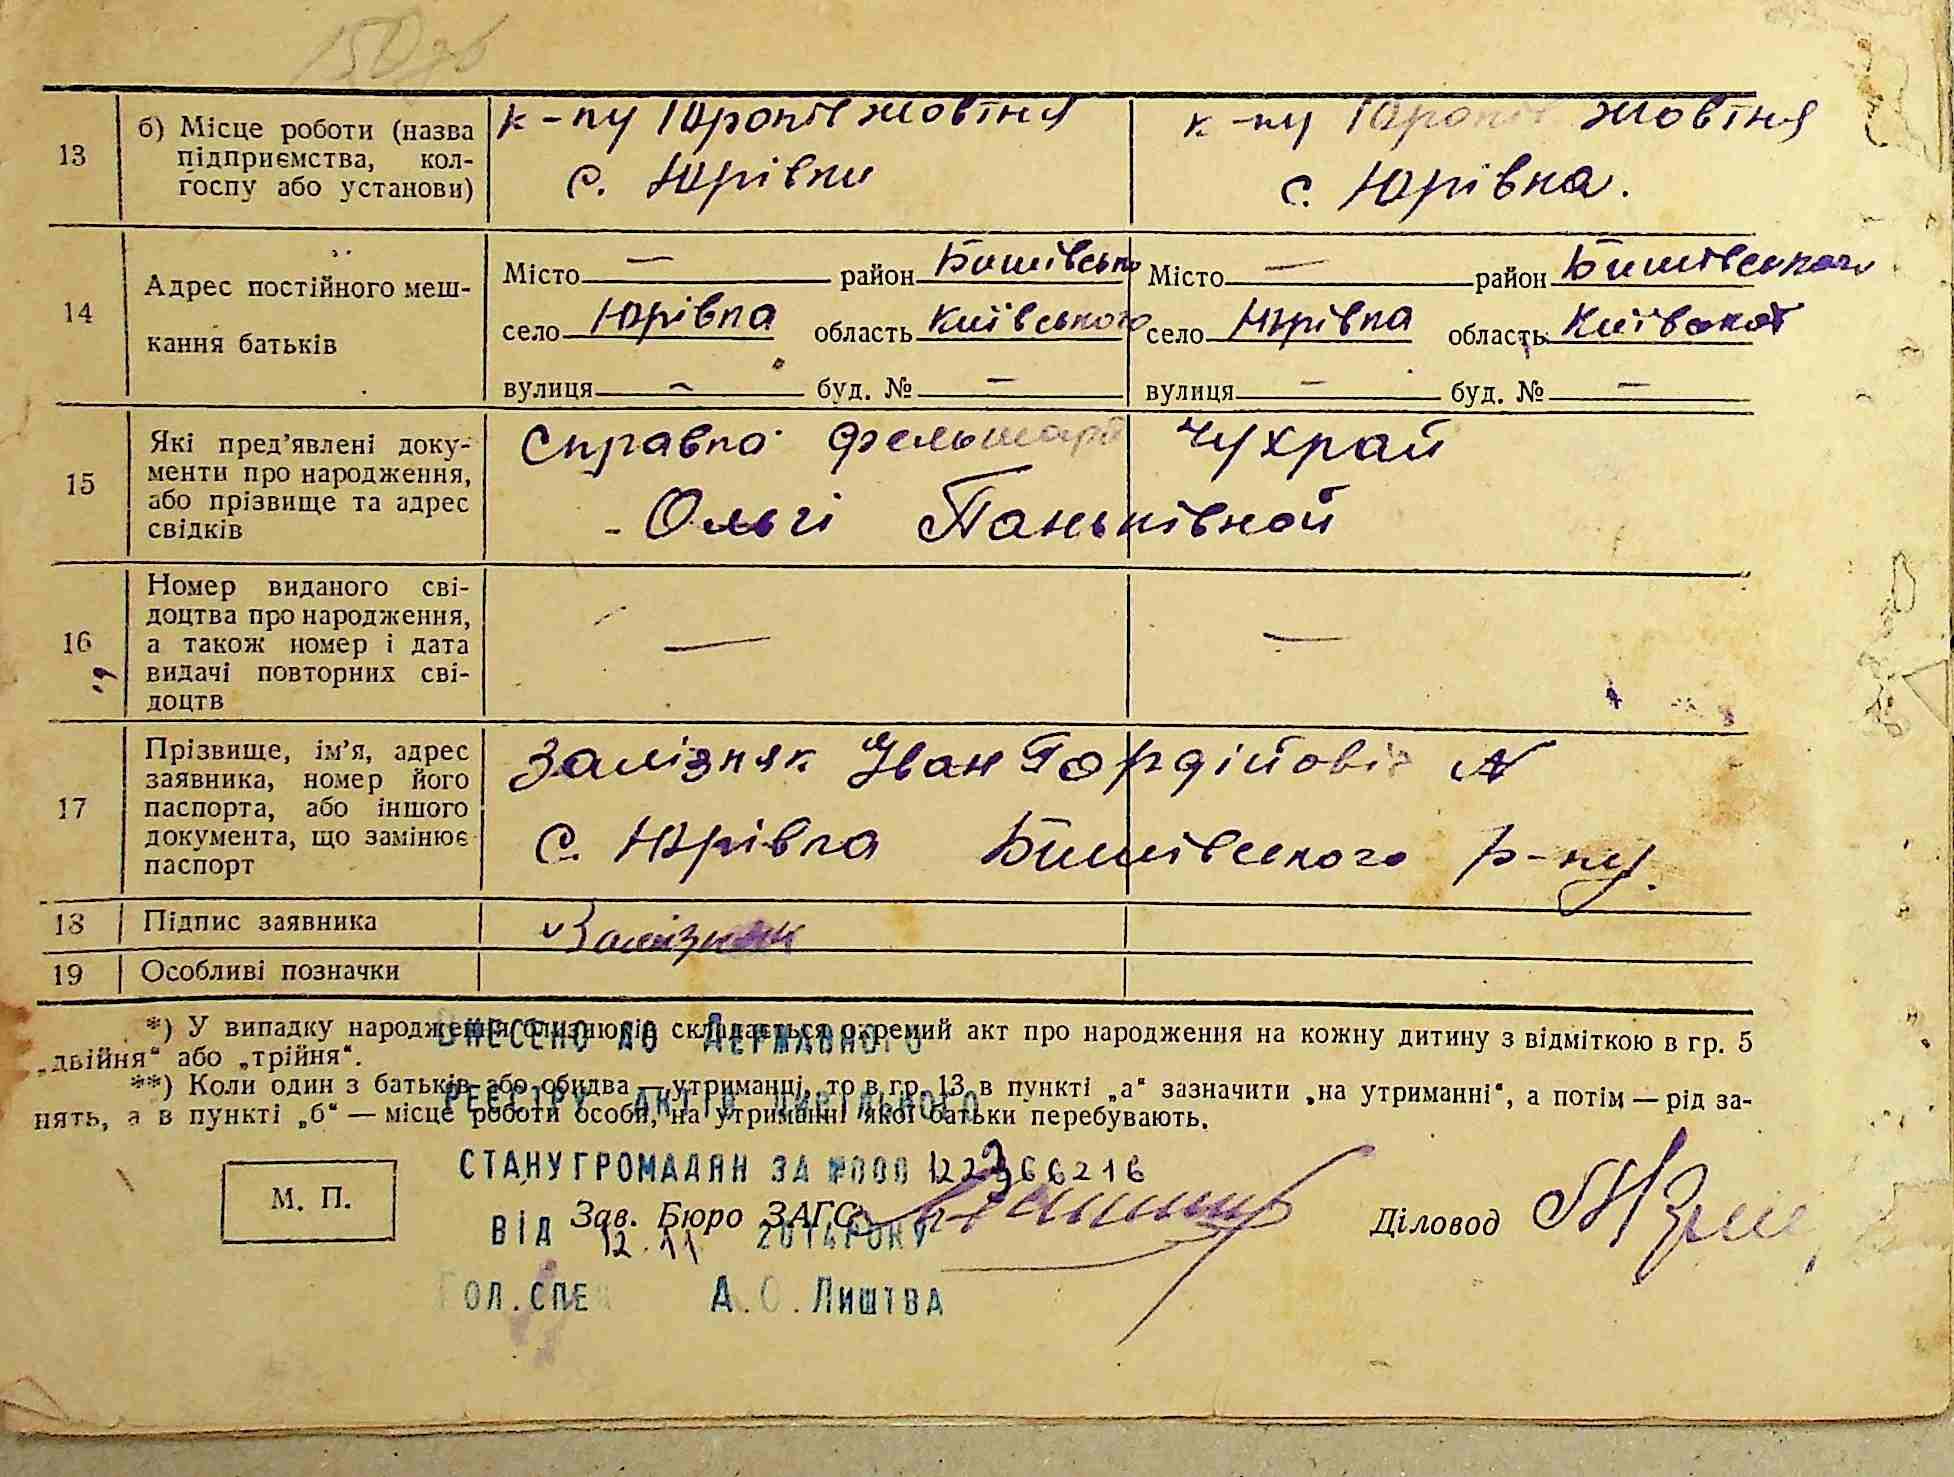 13
б) Місце роботи (назва
підприємства, кол-
госпу або установи)
к-пу 10 років жовтня
с. Юрівки
к-пу 10 років жовтня
с. Юрівка.
14
Адрес постійного меш-
кання батьків
Місто — район Бишівсько
село Юрівка область Київського
вулиця — буд. № —
Місто — район Бишівського
село Юрівка область Київской
вулиця — буд. № —
15
Які пред'явлені доку-
менти про народження,
або прізвище та адрес
свідків
Справка фельшара Чухрай
- Ольгі Паньківной
16
Номер виданого сві-
доцтва про народження,
а також номер і дата
видачі повторних сві-
доцтв
—
—
17
Прізвище, ім'я, адрес
заявника, номер його
паспорта, або іншого
документа, що замінює
паспорт
Залізняк Іван Гордійовіч №
с. Юрівка Бишівського р-ну.
18
Підпис заявника
Залізняк
19
Особливі позначки
*) У випадку народження близнюків складається окремий акт про народження на кожну дитину з відміткою в гр. 5
„двійня“ або „трійня“.
**) Коли один з батьків або обидва — утриманці, то в гр. 13 в пункті „а“ зазначити „на утриманні“, а потім — рід за-
нять, а в пункті „б“ — місце роботи особи, на утриманні якої батьки перебувають.
ВНЕСЕНО ДО ДЕРЖАВНОГО
РЕЄСТРУ АКТІВ ЦИВІЛЬНОГО
СТАНУ ГРОМАДЯН ЗА №000 122366216
ВІД 12.11 2014 РОКУ
ГОЛ. СПЕЦ А.О. ЛИШТВА
М. П.
Зав. Бюро ЗАГС
Діловод